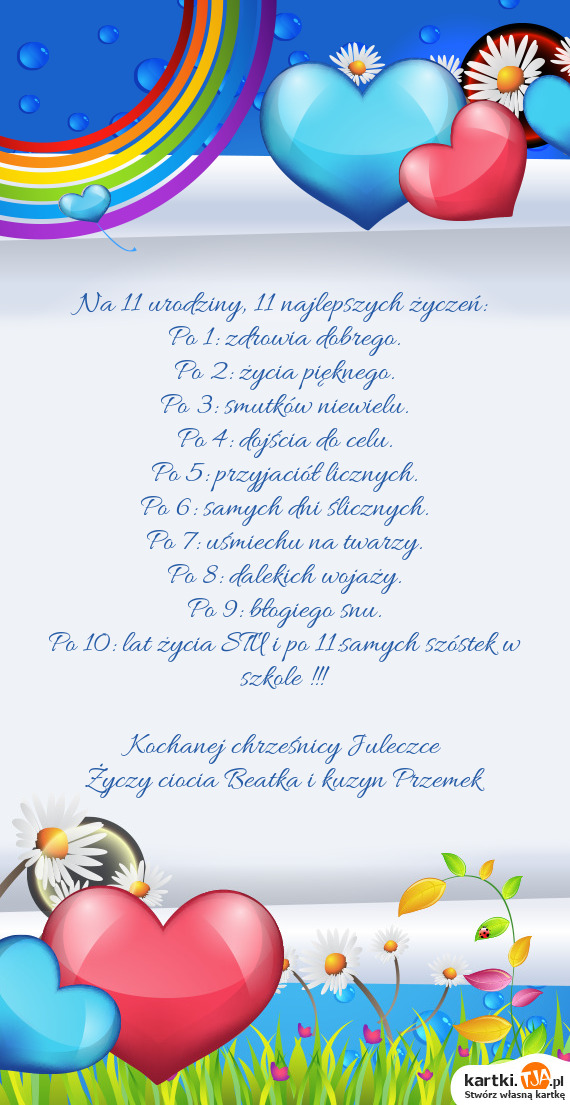 Na 11 urodziny, 11 najlepszych życzeń:
Po 1: zdrowia dobrego.
Po 2: życia pięknego.
Po 3: smutków niewielu.
Po 4: dojścia do celu.
Po 5: przyjaciół licznych.
Po 6: samych dni ślicznych.
Po 7: uśmiechu na twarzy.
Po 8: dalekich wojaży.
Po 9: błogiego snu.
Po 10: lat życia STU i po 11:samych szóstek w
szkole !!!
Kochanej chrześnicy Juleczce
Życzy ciocia Beatka i kuzyn Przemek
kartki.TJA.pl
Stwórz własną kartkę